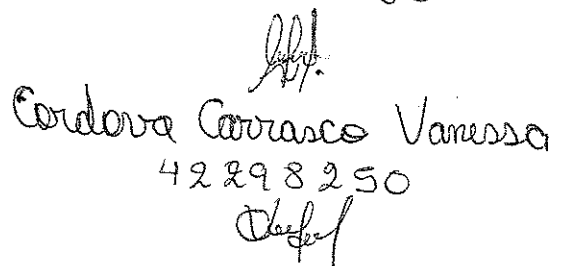 Cordova Carrasco Vanessa
42298250